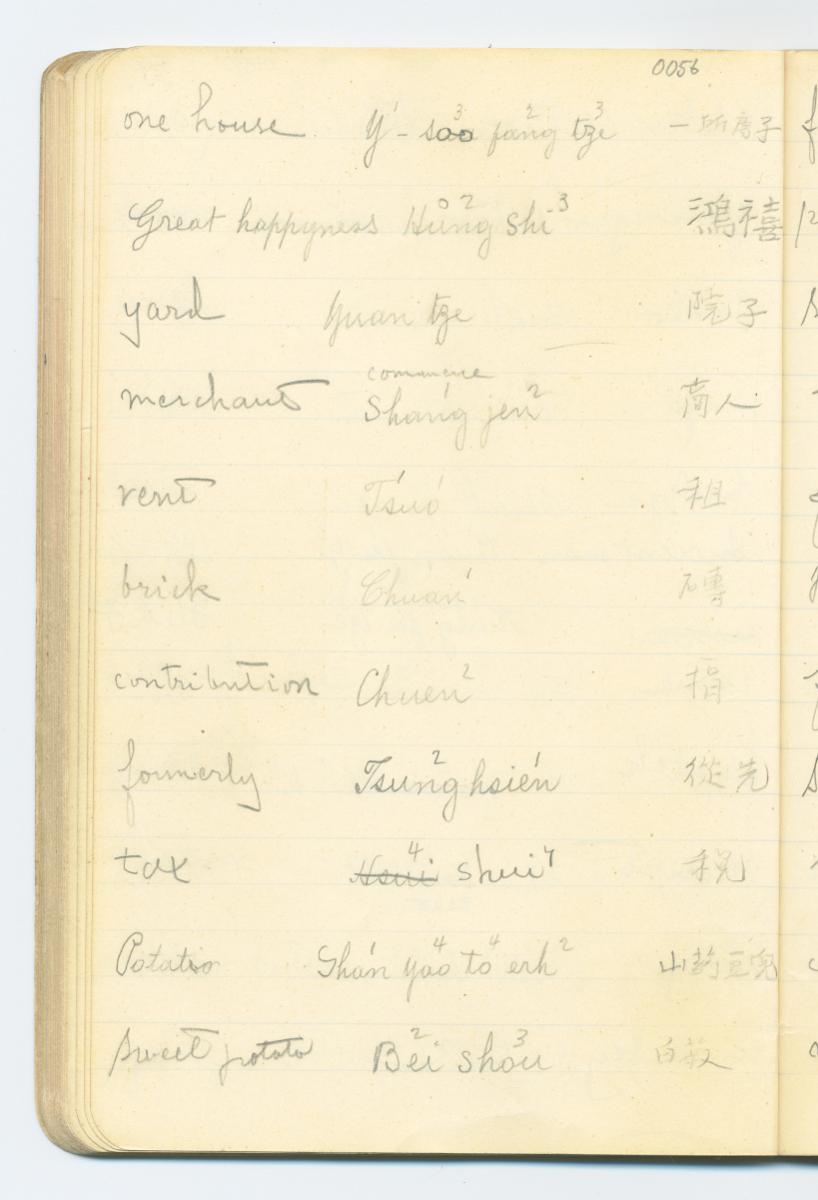 0056
one house Y' - soo³ fang² tze³ 一所房子
Great happyness Hung² shi³ 鴻禧
yard Yuan tze 院子
commerce
merchant Shang' jen² 商人
rent Tsuo' 租
brick Chuan' 磚
contribution Chuen² 捐
formerly Tsung² hsien' 從先
tax Hsui⁴ shui⁴ 稅
Potato Shan' yao⁴ to⁴ erh² 山药豆兒
sweet potato Bei² shou³ 白